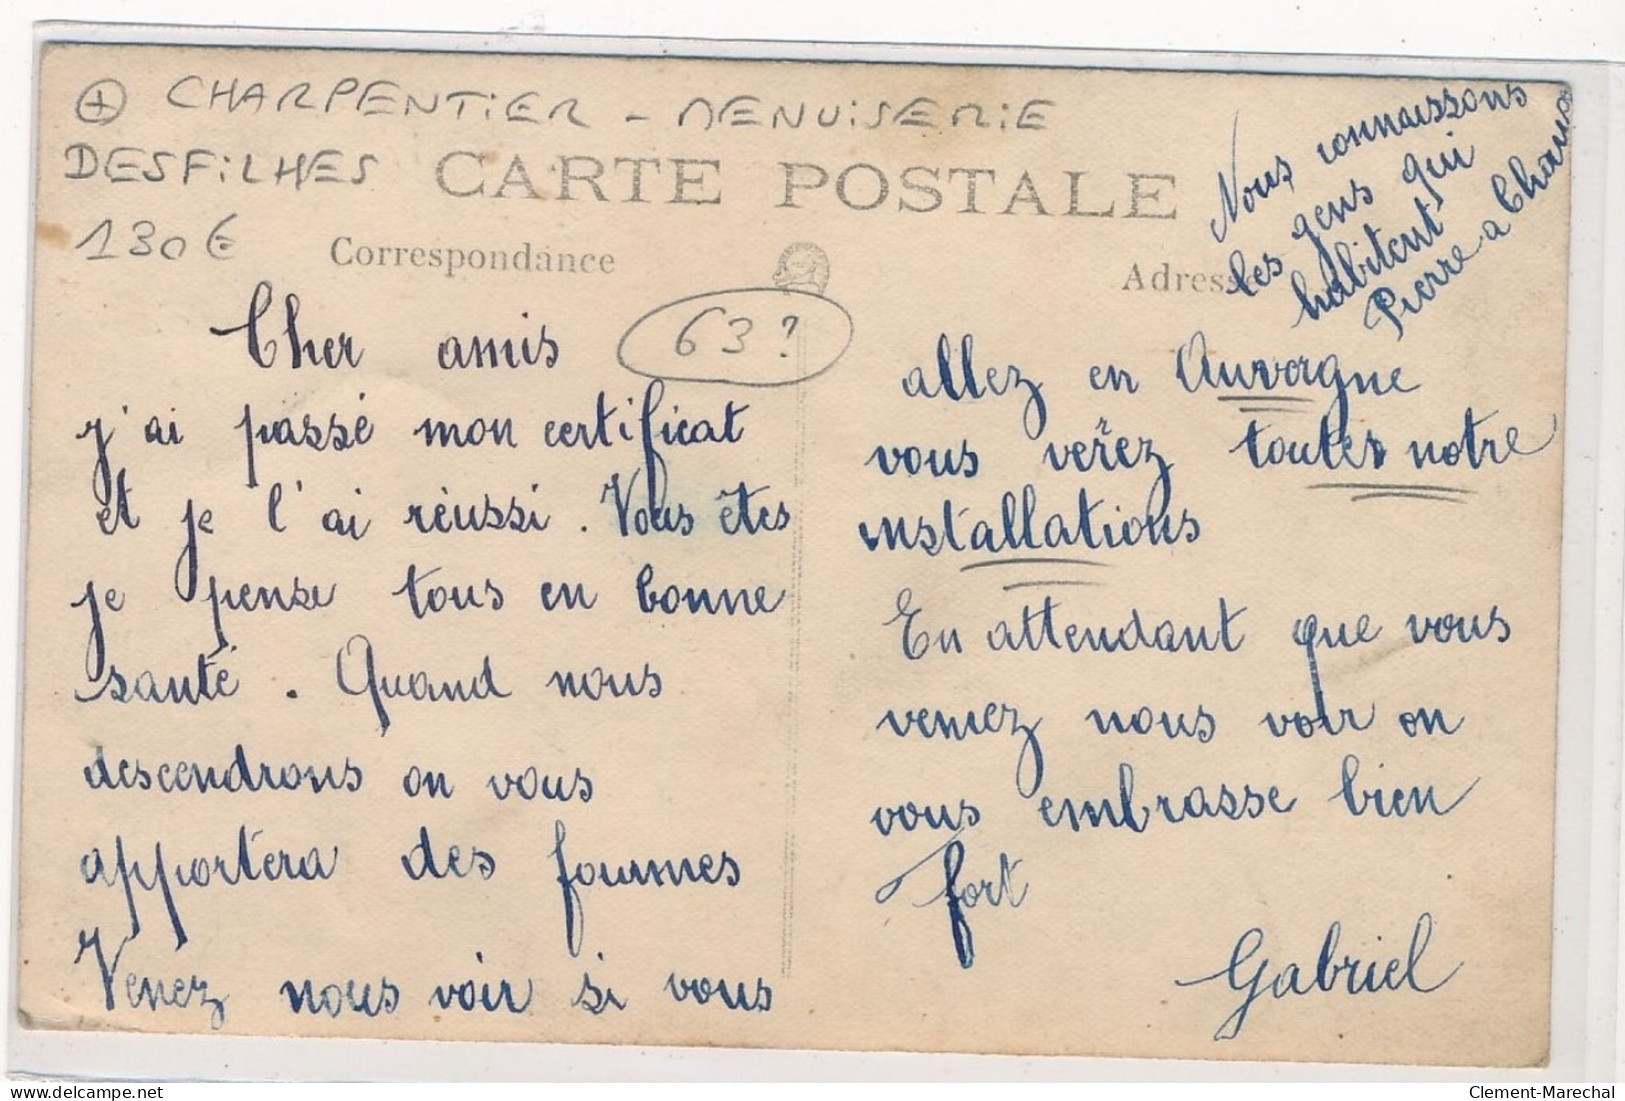 ⊕ CHARPENTIER - MENUISERIE
DESFILHES
130€
CARTE POSTALE
Correspondance
Adresse
63?
Cher amis
j'ai passé mon certificat
et je l'ai réussi. Vous êtes
je pense tous en bonne
santé. Quand nous
descendrons on vous
apportera des fourmes
Venez nous voir si vous
Nous connaissons
les gens qui
habitent
Pierre a
allez en Auvergne
vous verrez toutes notre
installations
En attendant que vous
veniez nous voir on
vous embrasse bien
fort
Gabriel
delcampe.net
Clement-Marechal